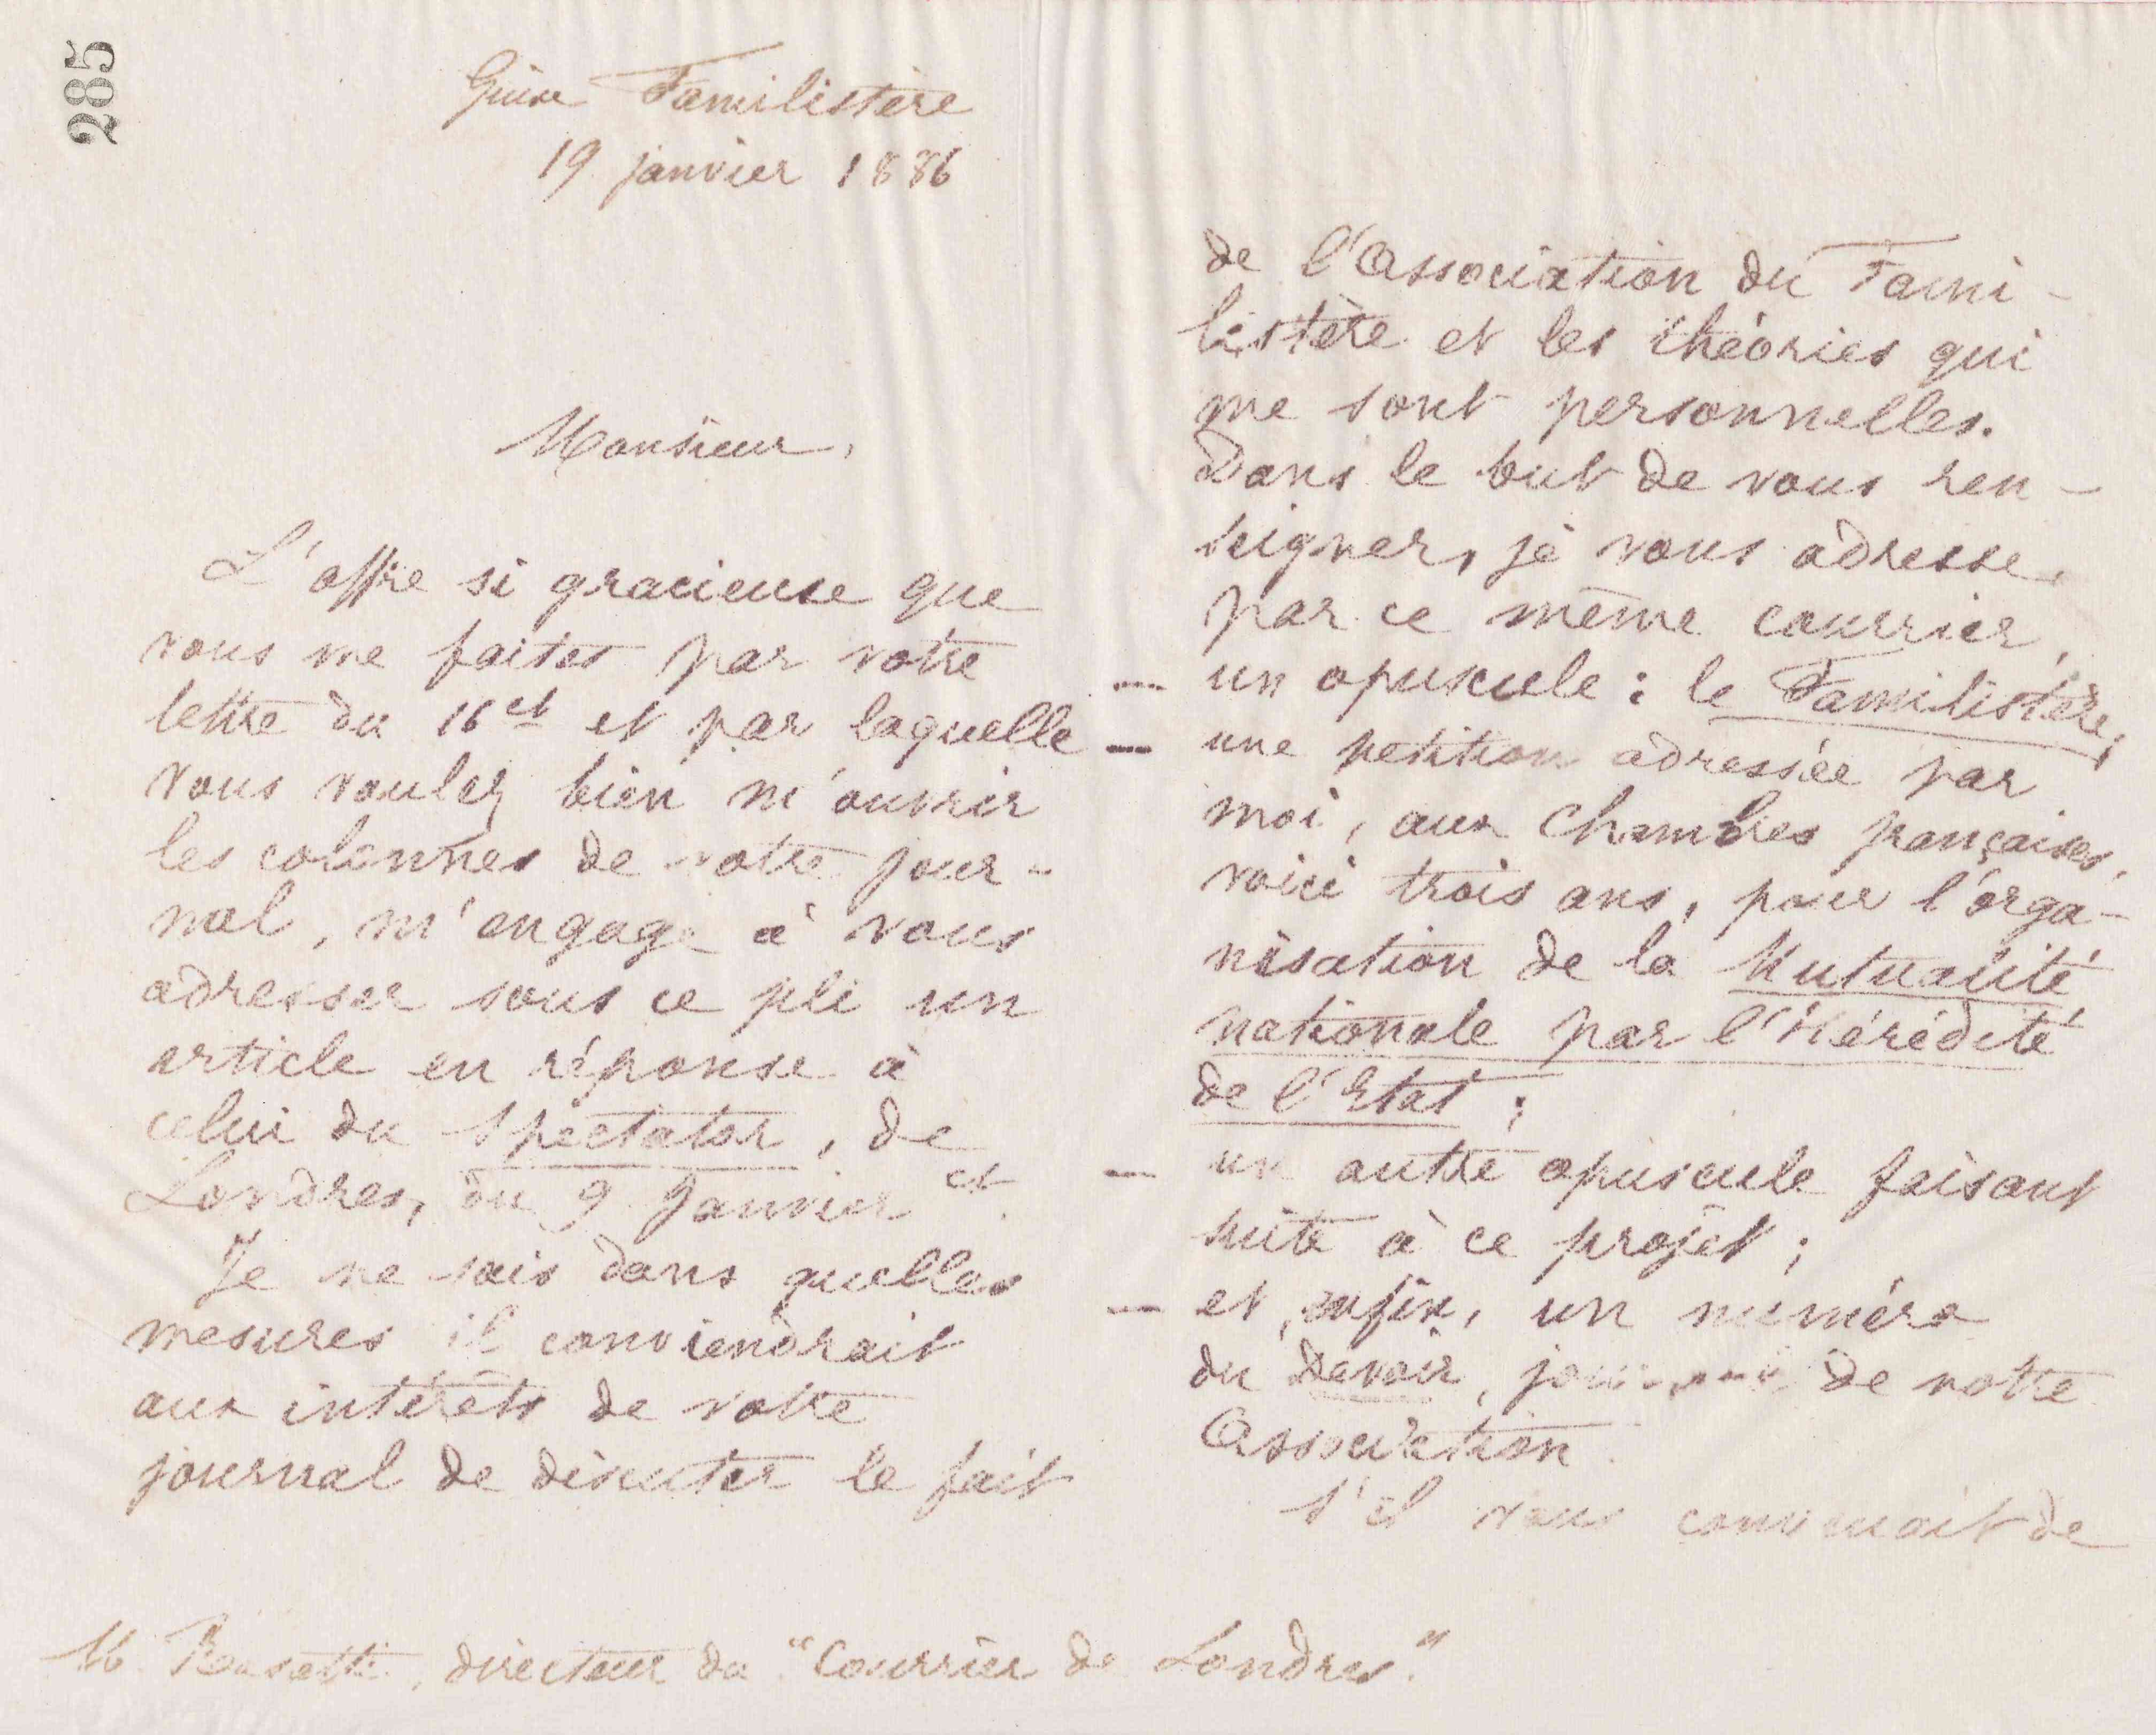 285
Guise Familistère
19 janvier 1886
Monsieur,
L'offre si gracieuse que
vous me faites par votre
lettre du 16 ct et par laquelle
vous voulez bien m'ouvrir
les colonnes de votre jour-
nal, m'engage à vous
adresser sous ce pli un
article en réponse à
celui du Spectator, de
Londres, du 9 Janvier ct
Je ne sais dans quelles
mesures il conviendrait
aux intérêts de votre
journal de discuter le fait
de l'Association du Fami-
listère et les théories qui
me sont personnelles.
Dans le but de vous ren-
seigner, je vous adresse,
par ce même courrier,
— un opuscule : le Familistère;
— une petition adressée par
moi, aux Chambres françaises,
voici trois ans, pour l'orga-
nisation de la Mutualité
nationale par l'Hérédité
de l'Etat ;
— un autre opuscule faisant
suite à ce projet ;
— et, enfin, un numéro
du Devoir, journal de notre
Association.
S'il vous convenait de
M. directeur du "Courrier de Londres"